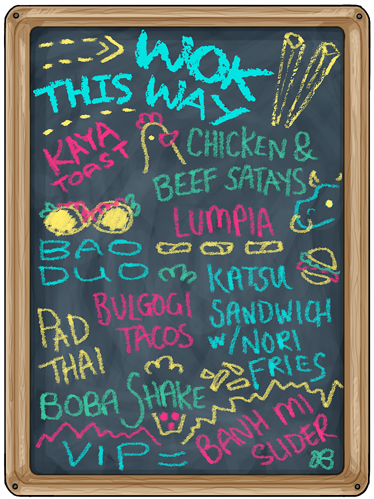 WOK
THIS WAY
KAYA
TOAST
CHICKEN &
BEEF SATAYS
LUMPIA
BAO
DUO
KATSU
SANDWICH
W/NORI
FRIES
BULGOGI
TACOS
PAD
THAI
BOBA SHAKE
BANH MI
SLIDER
VIP =